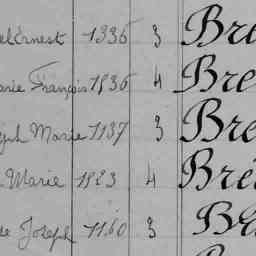 Ernest 1336 3 Bre
Marie François 1836 4 Bre
Joseph Marie 1137 3 Bre
Marie 1823 4 Bré
Joseph 1160 3